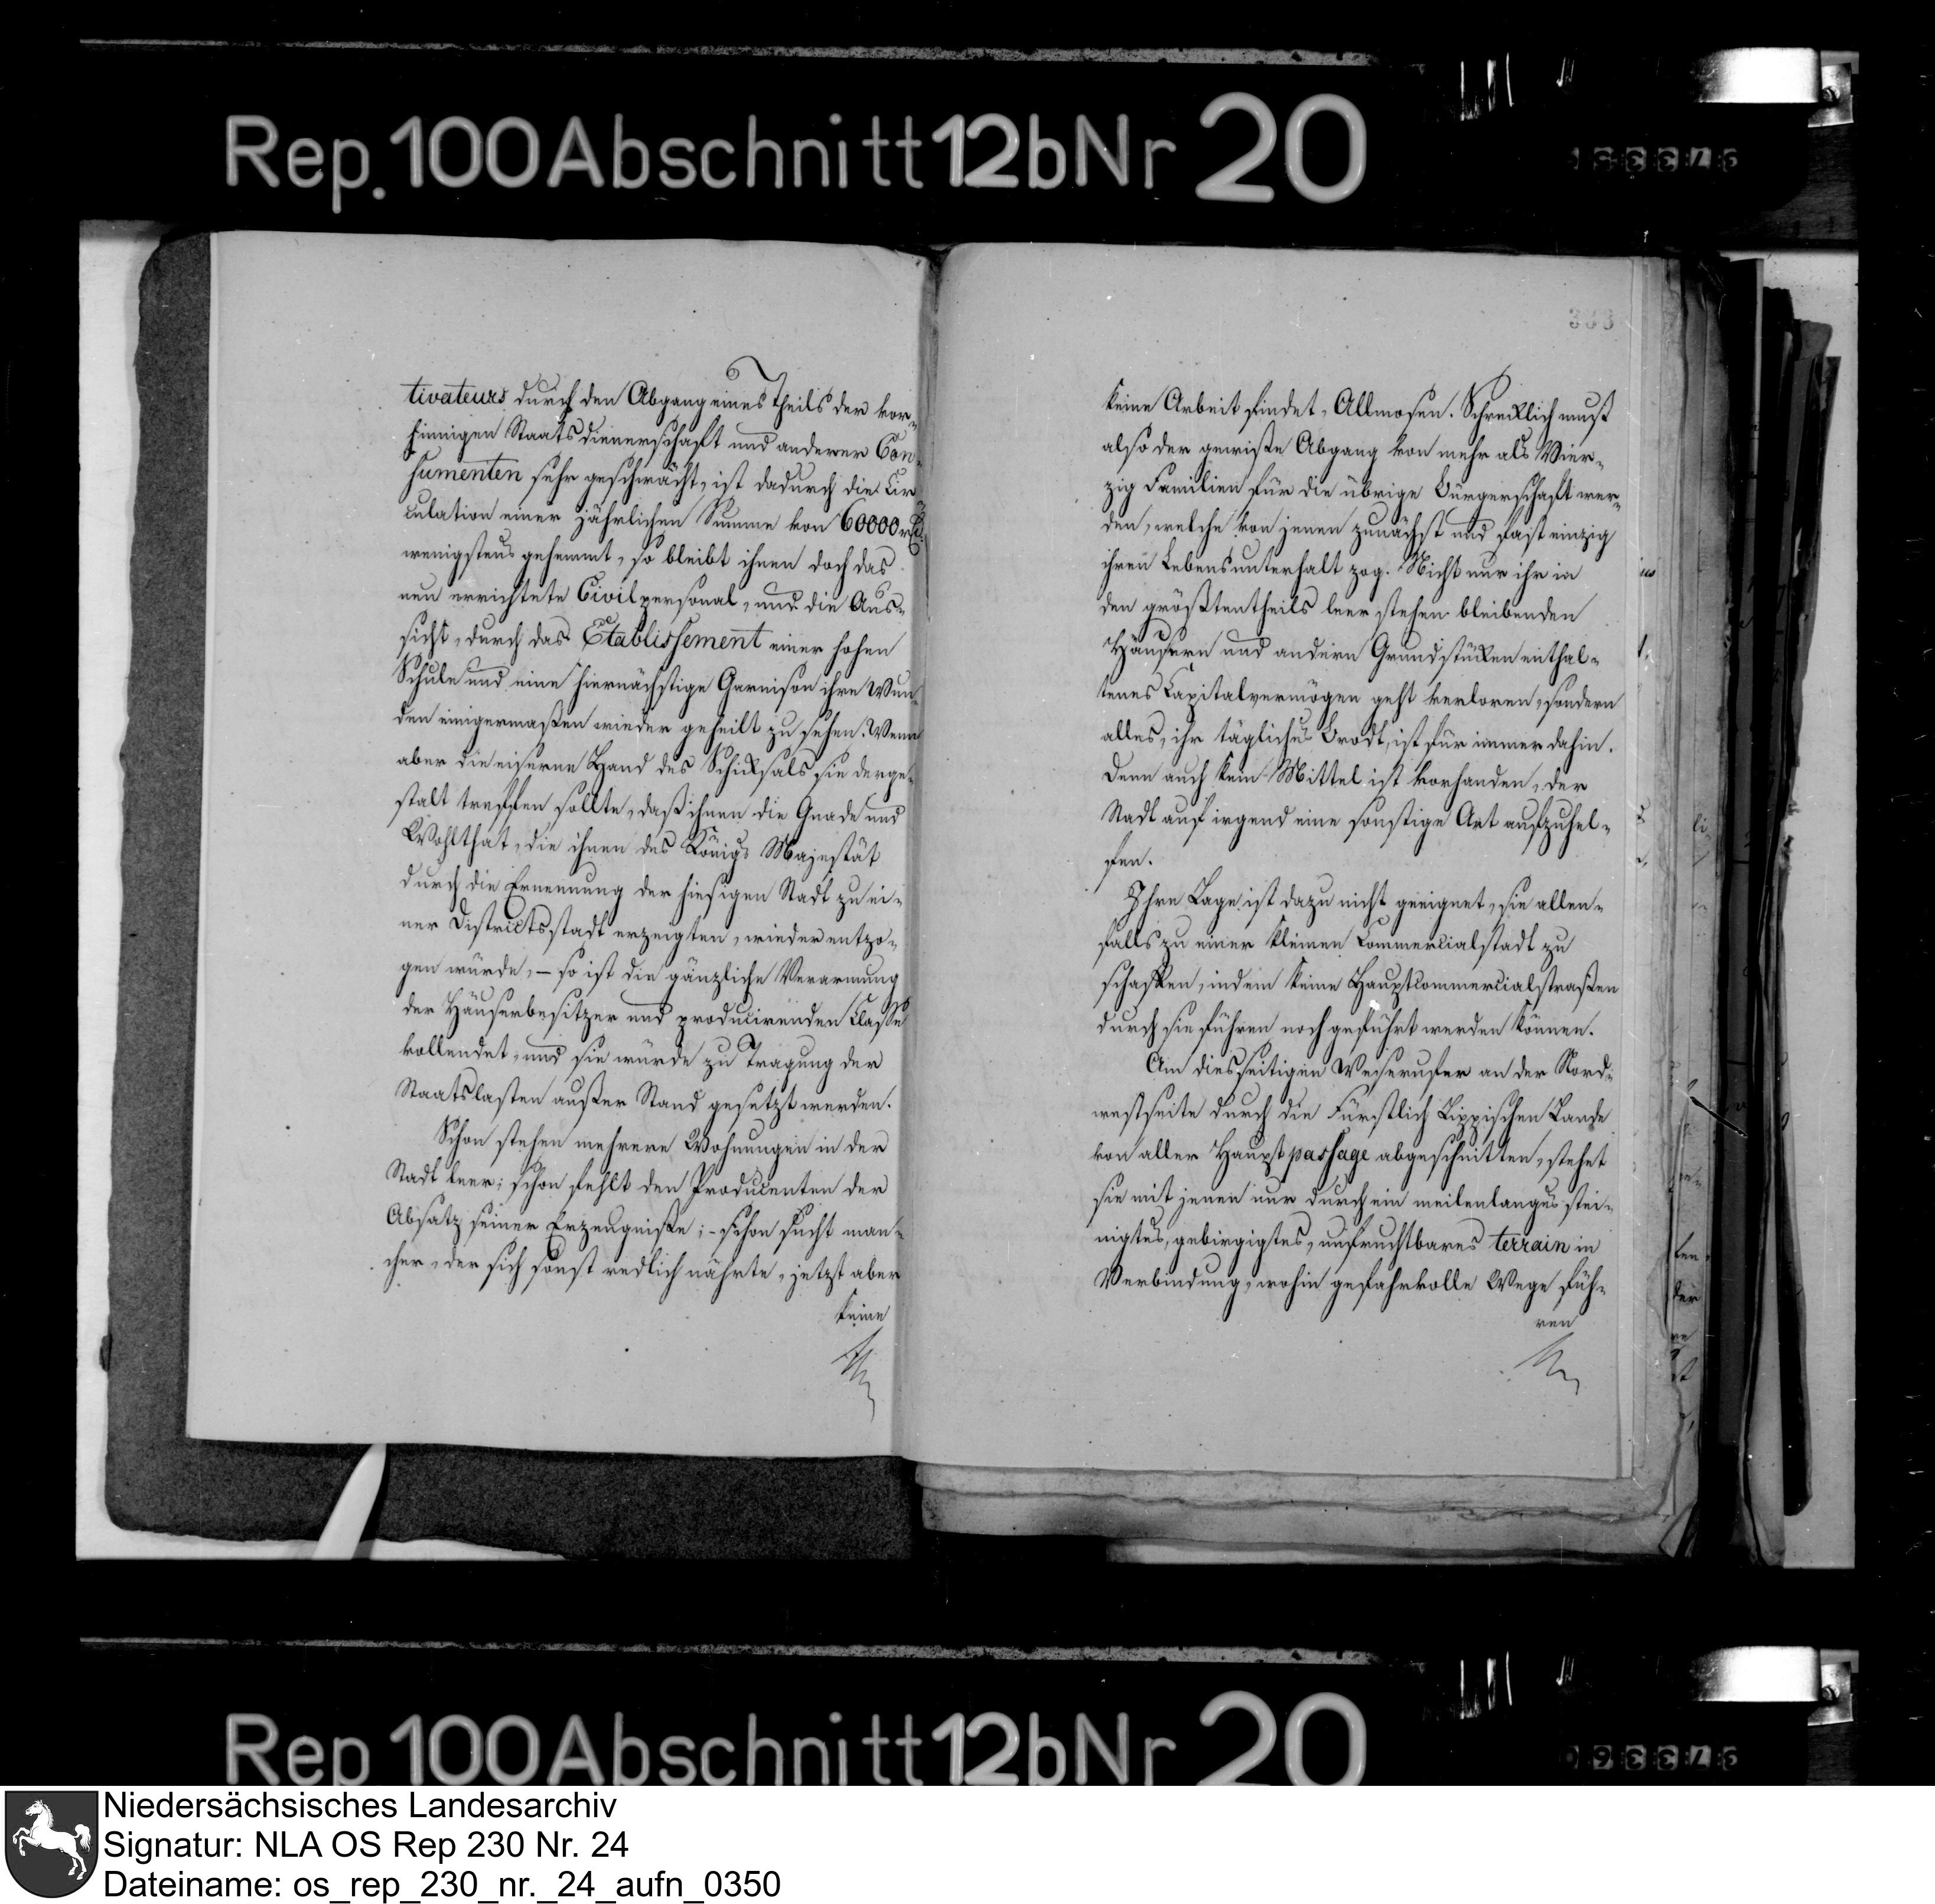 Rep. 100 Abschnitt 12b Nr 20
tivateurs durch den Abgang eines Theils der vor-
hinnigen Staatsdienerschaft und anderer Con-
sumenten sehr geschwächt, ist dadurch die Cir-
culation einer jährlichen Summe von 60000 rtl.
wenigstens gehemmt, so bleibt ihnen doch das
neu errichtete Civilpersonal, und die Aus-
sicht, durch das Etablissement einer hohen
Schule und eine hiernächstige Garnison ihre Wun-
den einigermaßen wieder geheilt zu sehen. Wenn
aber die eiserne Hand des Schiksals sie derge-
stalt treffen sollte, daß ihnen die Gnade und
Wohlthat, die ihnen des Königs Majestät
durch die Ernennung der hiesigen Stadt zu ei-
ner Districtsstadt erzeigten, wieder entzo-
gen würde, – so ist die gänzliche Verarmung
der Häuserbesitzer und producirenden Classe
vollendet, und sie würde zu Tragung der
Staatslasten außer Stand gesetzt werden.
Schon stehen mehrere Wohnungen in der
Stadt leer; schon fehlt den Producenten der
Absatz seiner Erzeugniße; – schon sucht man-
cher, der sich sonst redlich nährte, jetzt aber
keine
333
keine Arbeit findet, Allmosen. Schreklich muß
also der gewiße Abgang von mehr als Vier-
zig Familien für die übrige Bürgerschaft wer-
den, welche von jenen zunächst und fast einzig
ihren Lebensunterhalt zog. Nicht nur ihr in
den größtentheils leer stehen bleibenden
Häusern und andern Grundstüken enthal-
tenes Capitalvermögen geht verloren, sondern
alles, ihr tägliches Brodt, ist für immer dahin.
Denn auch kein Mittel ist vorhanden, der
Stadt auf irgend eine sonstige Art aufzuhel-
fen.
Ihre Lage ist dazu nicht geeignet, sie allen-
falls zu einer kleinen Commercialstadt zu
schaffen, indem keine Hauptcommercialstraßen
durch sie führen noch geführt werden können.
Am diesseitigen Weserufer an der Nord-
westseite durch die Fürstlich Lippischen Lande
von aller Hauptpassage abgeschnitten, stehet
sie mit jenen nur durch ein meilenlanges stei-
nigtes, gebirgigtes, unfruchtbares terrain in
Verbindung, wohin gefahrvolle Wege füh-
ren
Rep 100 Abschnitt 12b Nr 20
Niedersächsisches Landesarchiv
Signatur: NLA OS Rep 230 Nr. 24
Dateiname: os_rep_230_nr._24_aufn_0350